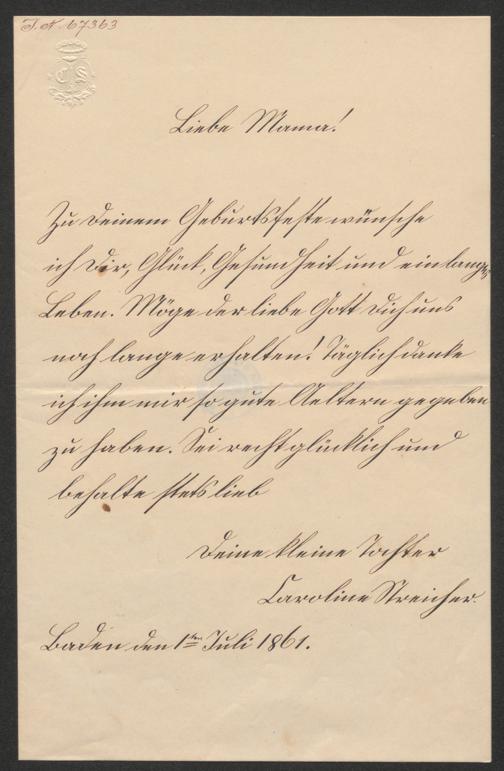 I. N. 67363
CS
Liebe Mama!
Zu Deinem Geburtsfeste wünsche
ich Dir, Glück, Gesundheit und ein langes
Leben. Möge der liebe Gott Dich uns
noch lange erhalten! Täglich danke
ich ihm mir so gute Aeltern gegeben
zu haben. Sei recht glücklich und
behalte stets lieb
Deine kleine Tochter
Caroline Streicher.
Baden den 1ten Juli 1861.